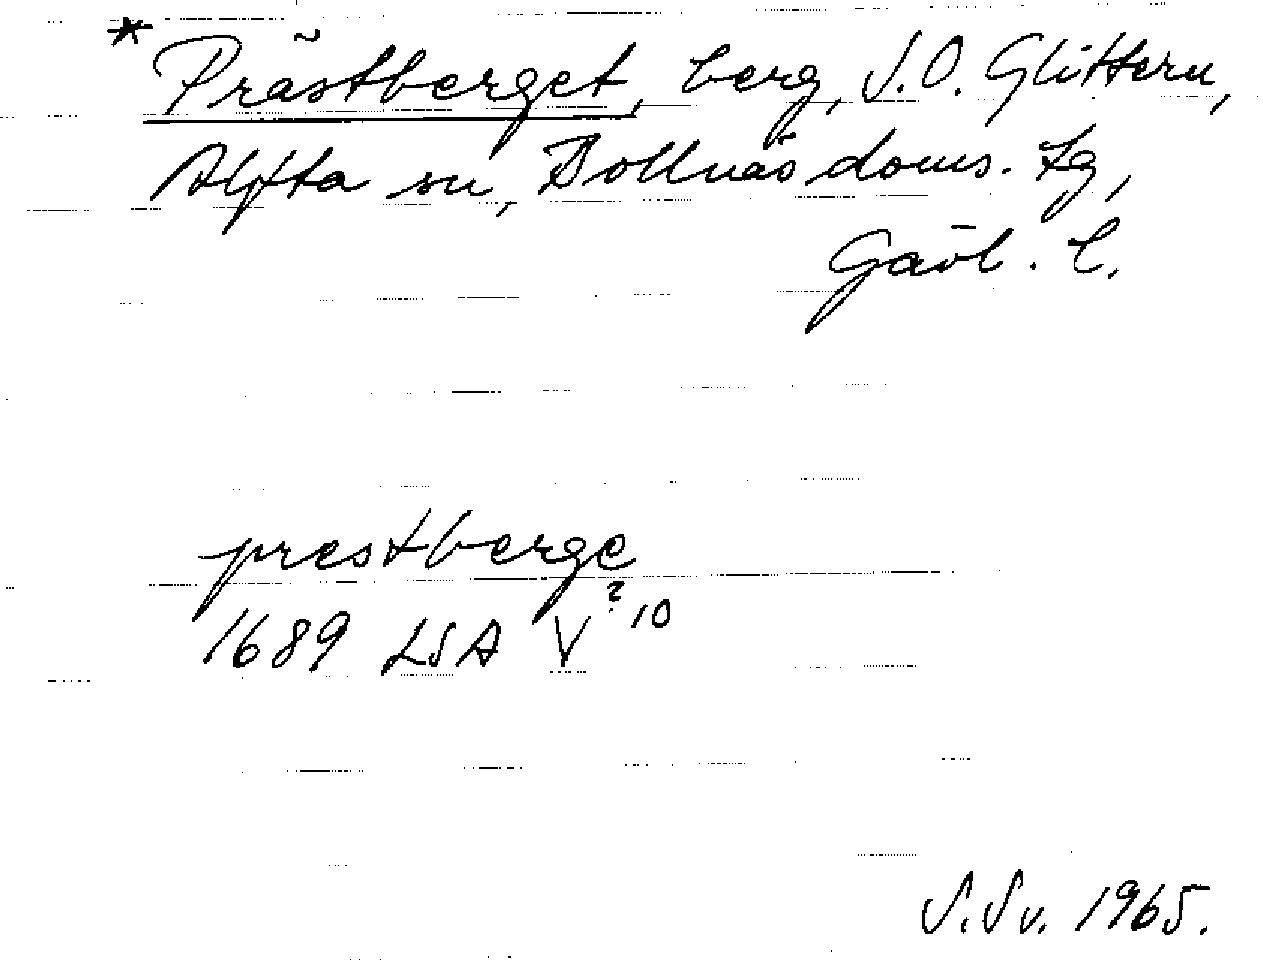 * Prästberget, berg, S.O. Glittern,
Alfta sn, Bollnäs doms. tg,
Gävl. l.
prestberge
1689 LSA V ? 10
S. Sv. 1965.